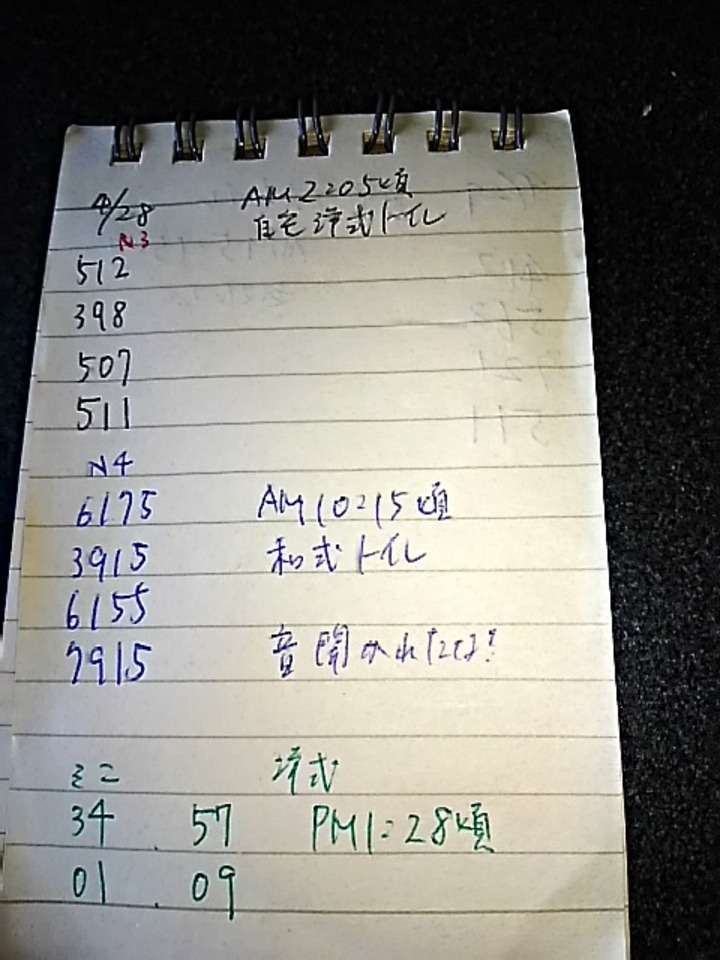 4/28 AM2:05頃
N3 自宅洋式トイレ
512
398
507
511
N4
6175 AM10:15頃
3915 和式トイレ
6155
7915 音聞かれた
ミニ 洋式
34 . 57 PM1:28頃
01 . 09